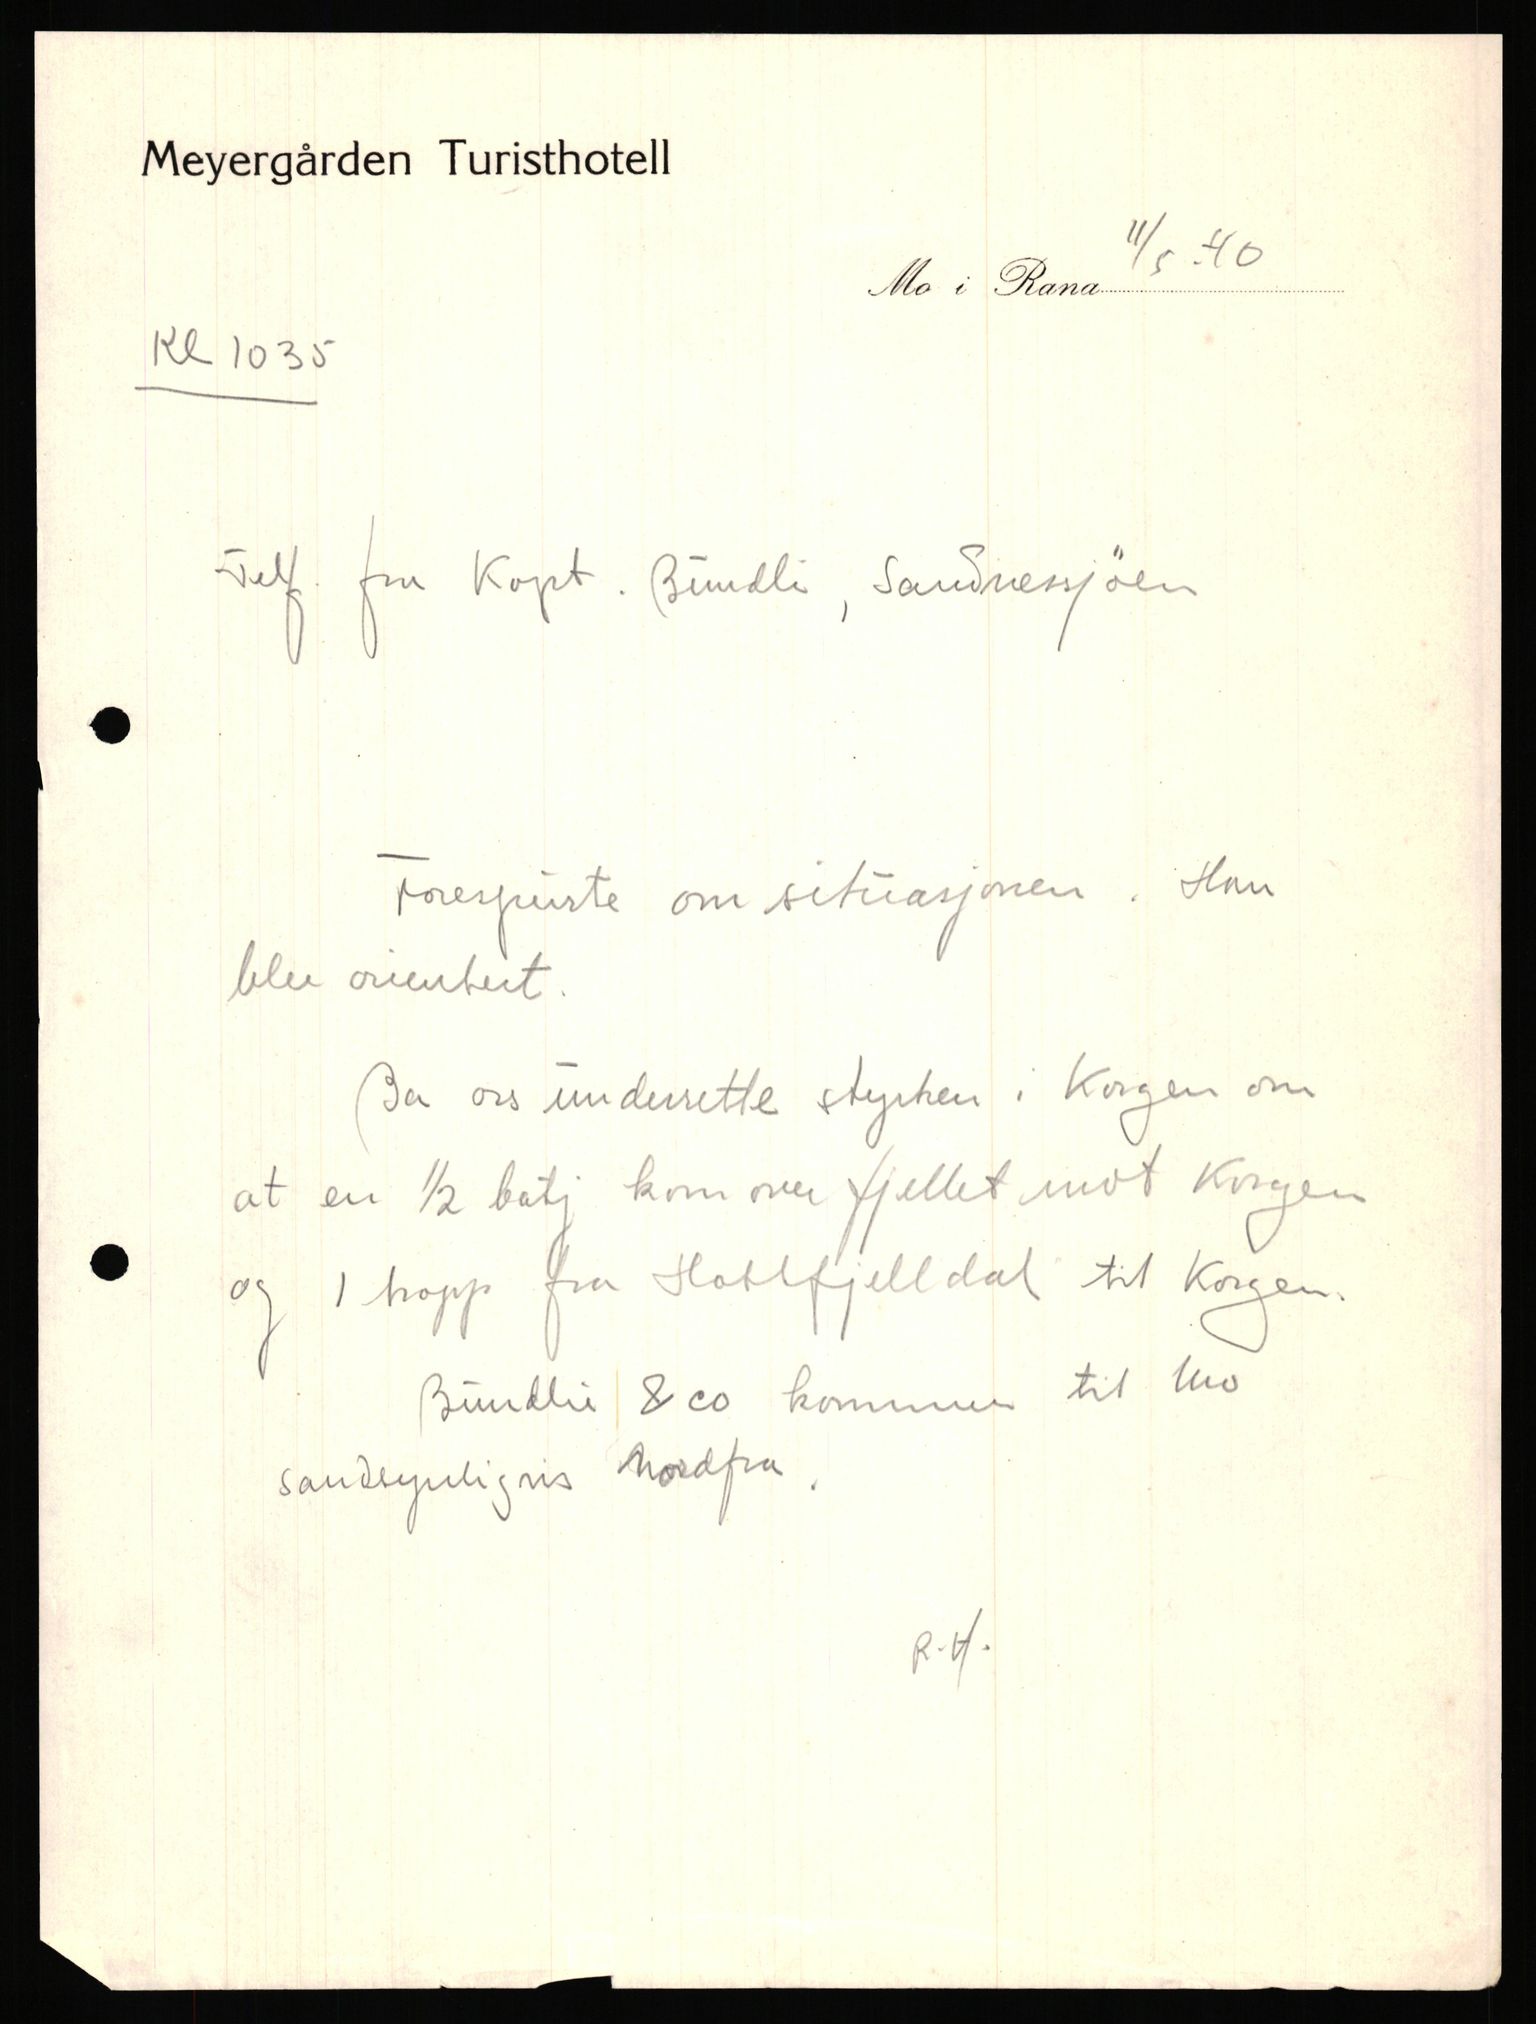 Meyergården Turisthotell
Mo i Rana 11/5-40
Kl 1035
Telf. fra Kapt. Bundli, Sandnessjöen
Forespurte om situasjonen. Han
blev orientert.
Ba oss underrette styrken i Korgen om
at en 1/2 batj kom over fjellet mot Korgen
og 1 tropp fra Hattfjelldal til Korgen.
Bundli & co kommer til Mo
sandsynligvis nordfra.
R.H.